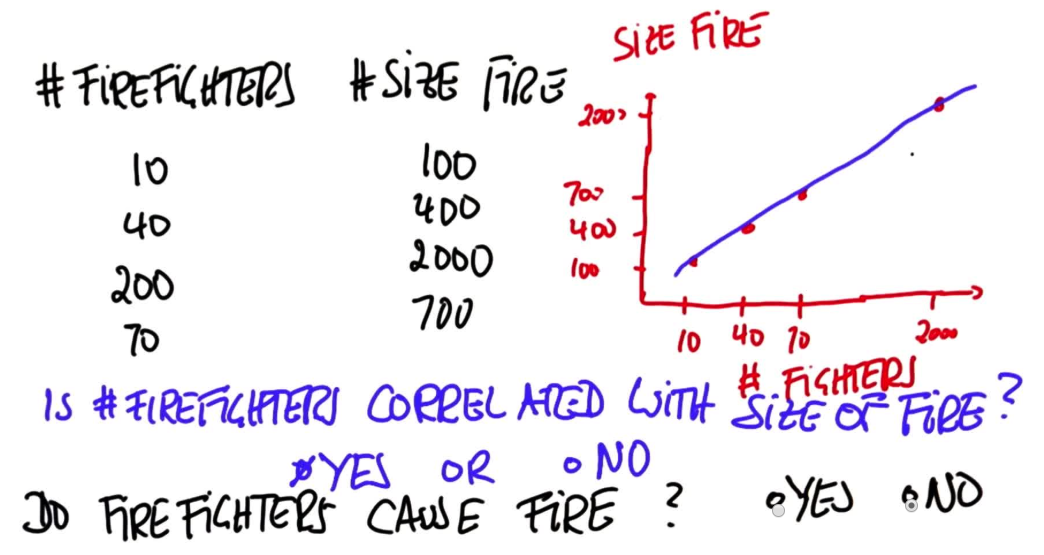 # FIREFIGHTERS # SIZE FIRE
10 100
40 400
200 2000
70 700
SIZE FIRE
2000
700
400
100
10 40 70 2000
# FIGHTERS
IS # FIREFIGHTERS CORRELATED WITH SIZE OF FIRE?
YES OR NO
DO FIREFIGHTERS CAUSE FIRE? YES NO